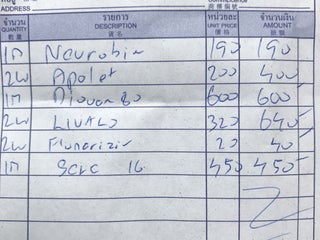 ADDRESS
จำนวน รายการ หน่วยละ จำนวนเงิน
QUANTITY DESCRIPTION UNIT PRICE AMOUNT
數量 貨名 價格 銀額
Neurobin 190 190
Apolet 200 400
Diovan 80 600 600
LIVALO 320 640
Flunarizin 20 40
Serc 16 450 450